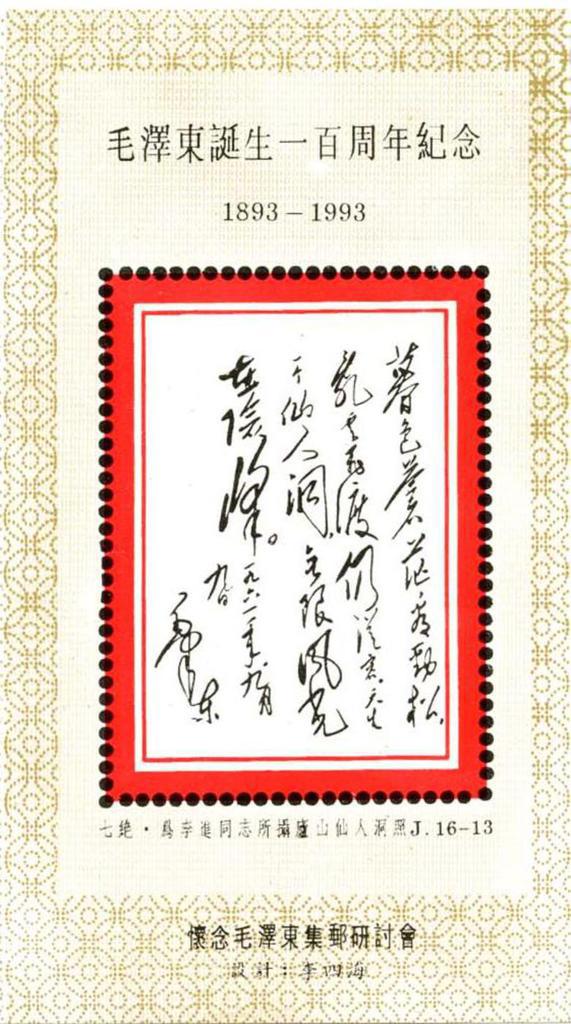 毛澤東誕生一百周年紀念
1893－1993
暮色蒼茫看勁松
亂雲飛渡仍從容 天生
一个仙人洞 无限風光
在險峰。一九六一年九月
九日
毛澤東
七绝·爲李進同志所攝廬山仙人洞照J.16-13
懷念毛澤東集郵研討會
設計：李四海